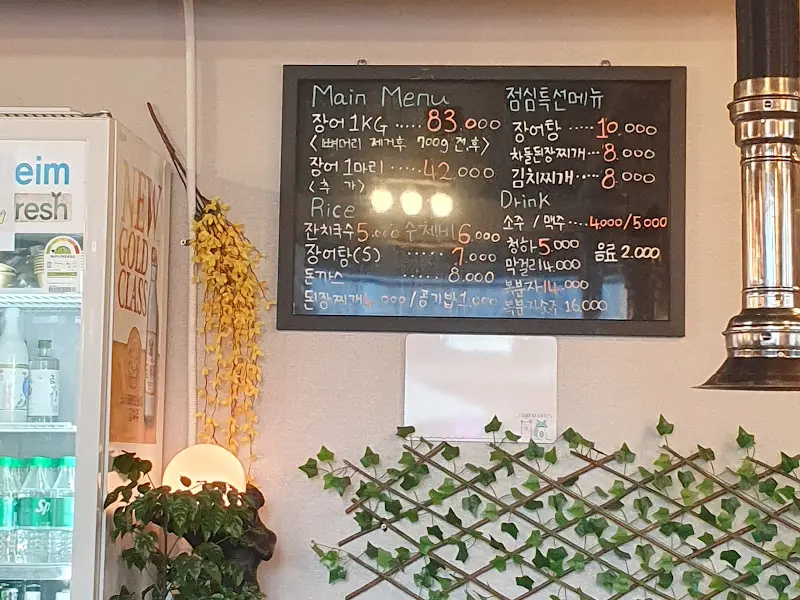 Main Menu
장어 1KG ..... 83.000
< 뼈머리 제거후 700g 전후 >
장어 1마리 ..... 42.000
< 추 가 >
Rice
잔치국수 5.000 수제비 6.000
장어탕(S) ...... 7.000
돈까스 ...... 8.000
된장찌개 4.000 / 공기밥 1.000
점심특선메뉴
장어탕 ..... 10.000
차돌된장찌개 ... 8.000
김치찌개 .... 8.000
Drink
소주 / 맥주 .... 4.000/5.000
청하 5.000 음료 2.000
막걸리 4.000
복분자 14.000
복분자소주 . 16.000
eim
resh
NEW
GOLD
CLASS